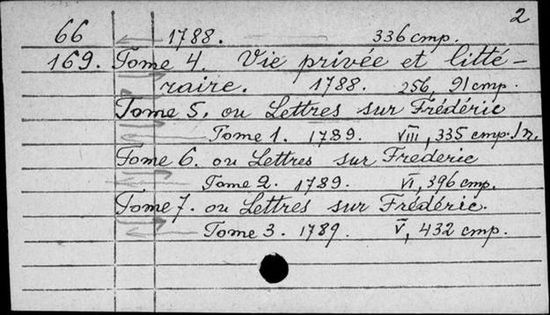 2
66 1788. 336 стр.
169. Tome 4. Vie privée et litté-
raire. 1788. 256, 91 стр.
Tome 5. ou Lettres sur Fréderic
Tome 1. 1789. VIII, 335 стр. 1 л.
Tome 6. ou Lettres sur Frederic
Tome 2. 1789. VI, 396 стр.
Tome 7. ou Lettres sur Fréderic.
Tome 3. 1789. V, 432 стр.